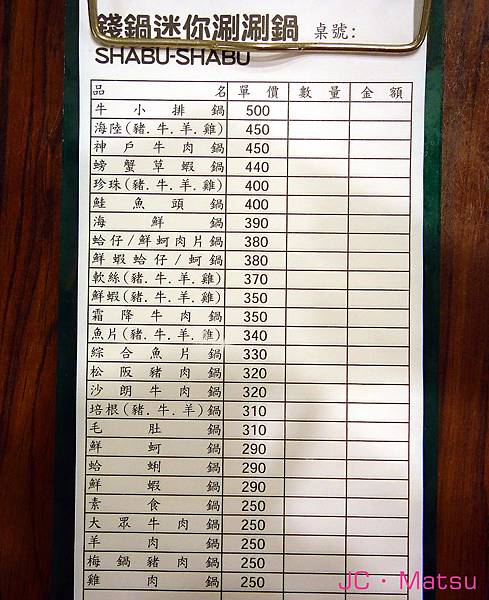 錢鍋迷你涮涮鍋 桌號:
SHABU-SHABU
品名 單價 數量 金額
牛小排鍋 500
海陸(豬.牛.羊.雞) 450
神戶牛肉鍋 450
螃蟹草蝦鍋 440
珍珠(豬.牛.羊.雞) 400
鮭魚頭鍋 400
海鮮鍋 390
蛤仔/鮮蚵肉片鍋 380
鮮蝦蛤仔/蚵鍋 380
軟絲(豬.牛.羊.雞) 370
鮮蝦(豬.牛.羊.雞) 350
霜降牛肉鍋 350
魚片(豬.牛.羊.雞) 340
綜合魚片鍋 330
松阪豬肉鍋 320
沙朗牛肉鍋 320
培根(豬.牛.羊)鍋 310
毛肚鍋 310
鮮蚵鍋 290
蛤蜊鍋 290
鮮蝦鍋 290
素食鍋 250
大眾牛肉鍋 250
羊肉鍋 250
梅鍋豬肉鍋 250
雞肉鍋 250
JC・Matsu